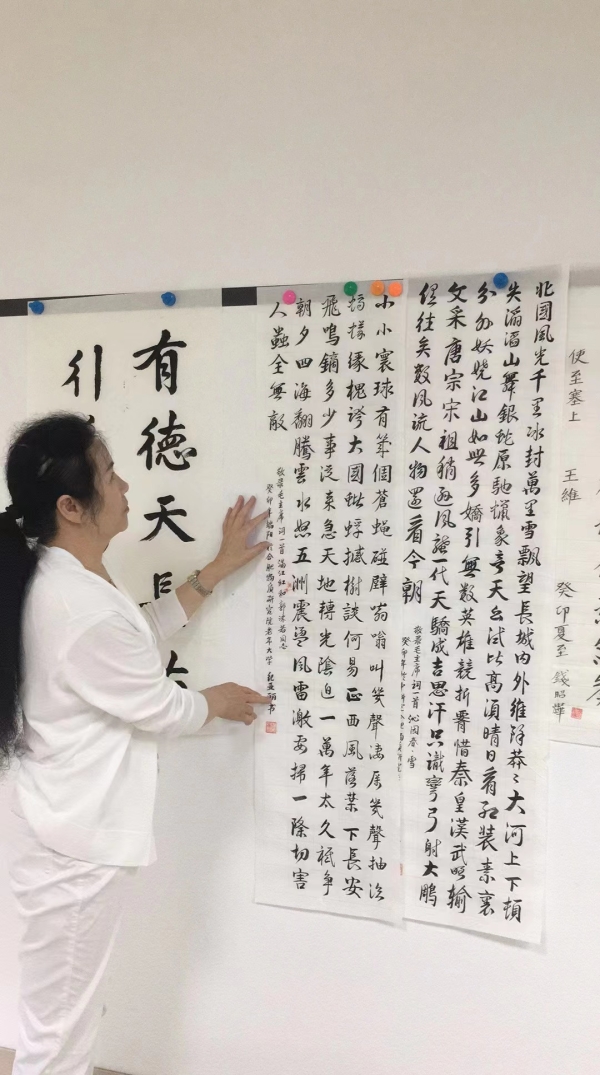 便至塞上
王維
癸卯夏至 錢昭華
北國風光千里冰封萬里雪飄望長城內外維餘莽〻大河上下頓
失滔滔山舞銀蛇原馳蠟象意天公試比高須晴日看紅裝素裹
分外妖嬈江山如此多嬌引無數英雄競折腰惜秦皇漢武略輸
文采唐宗宋祖稍遜風騷一代天驕成吉思汗只識彎弓射大鵬
俱往矣數風流人物還看今朝
敬录毛主席词一首 沁園春·雪
癸卯年
小小寰球有幾個蒼蠅碰壁嗡嗡叫幾聲淒厲幾聲抽泣
螞蟻緣槐誇大國蚍蜉撼樹談何易正西風落葉下長安
飛鳴鏑多少事從來急天地轉光陰迫一萬年太久祗爭
朝夕四海翻騰雲水怒五洲震盪風雷激要掃一除切害
人蟲全無敵
敬录毛主席词一首满江红和郭沫若同志
癸卯年端阳於合肥物質研究院老年大学
有德天長
行